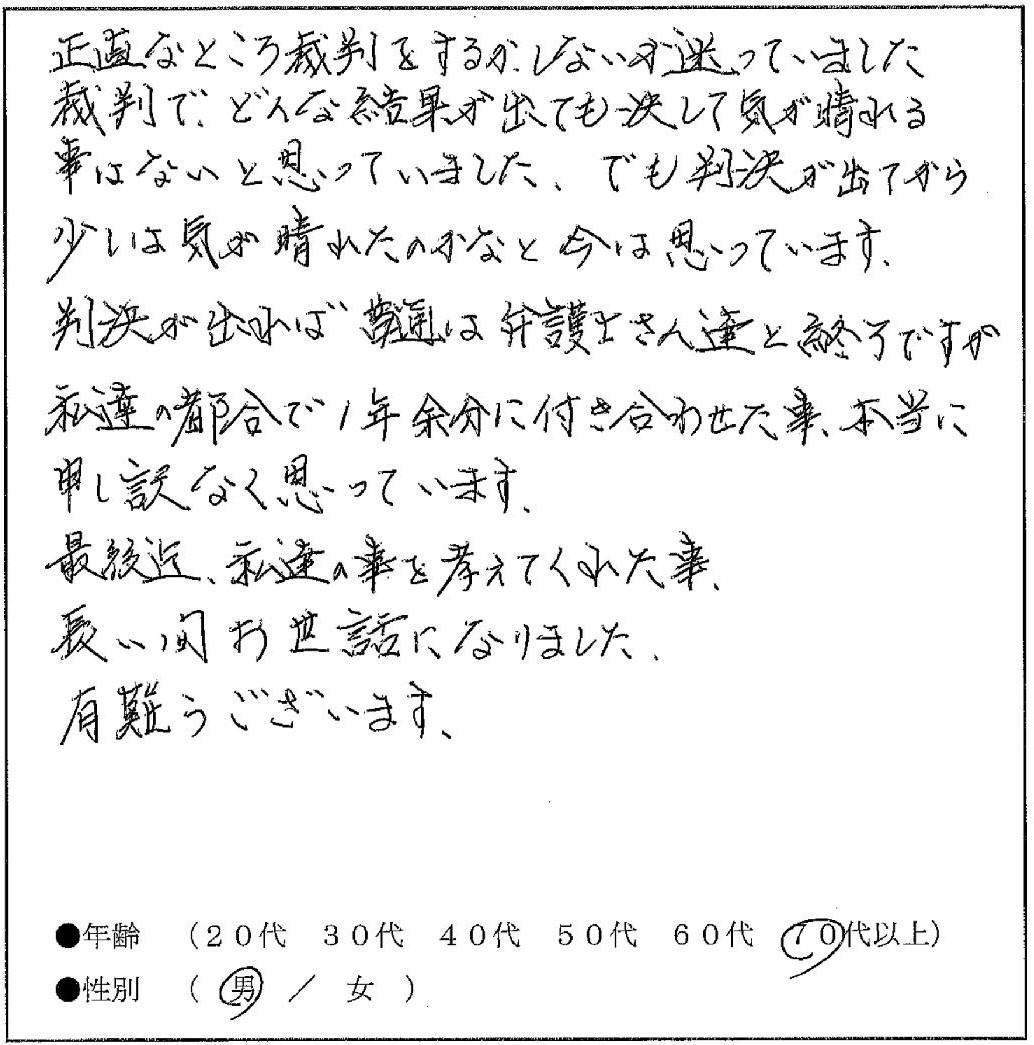 正直なところ裁判をするか、しないか迷っていました
裁判で、どんな結果が出ても決して気が晴れる
事はないと思っていました、でも判決が出てから
少しは気が晴れたのかなと今は思っています、
判決が出れば普通は弁護士さん達と終了ですが
私達の都合で1年余分に付き合わせた事、本当に
申し訳なく思っています、
最後迄、私達の事を考えてくれた事、
長い間お世話になりました、
有難うございます、
●年齢 （２０代 ３０代 ４０代 ５０代 ６０代 ７０代以上）
●性別 （ 男 ／ 女 ）